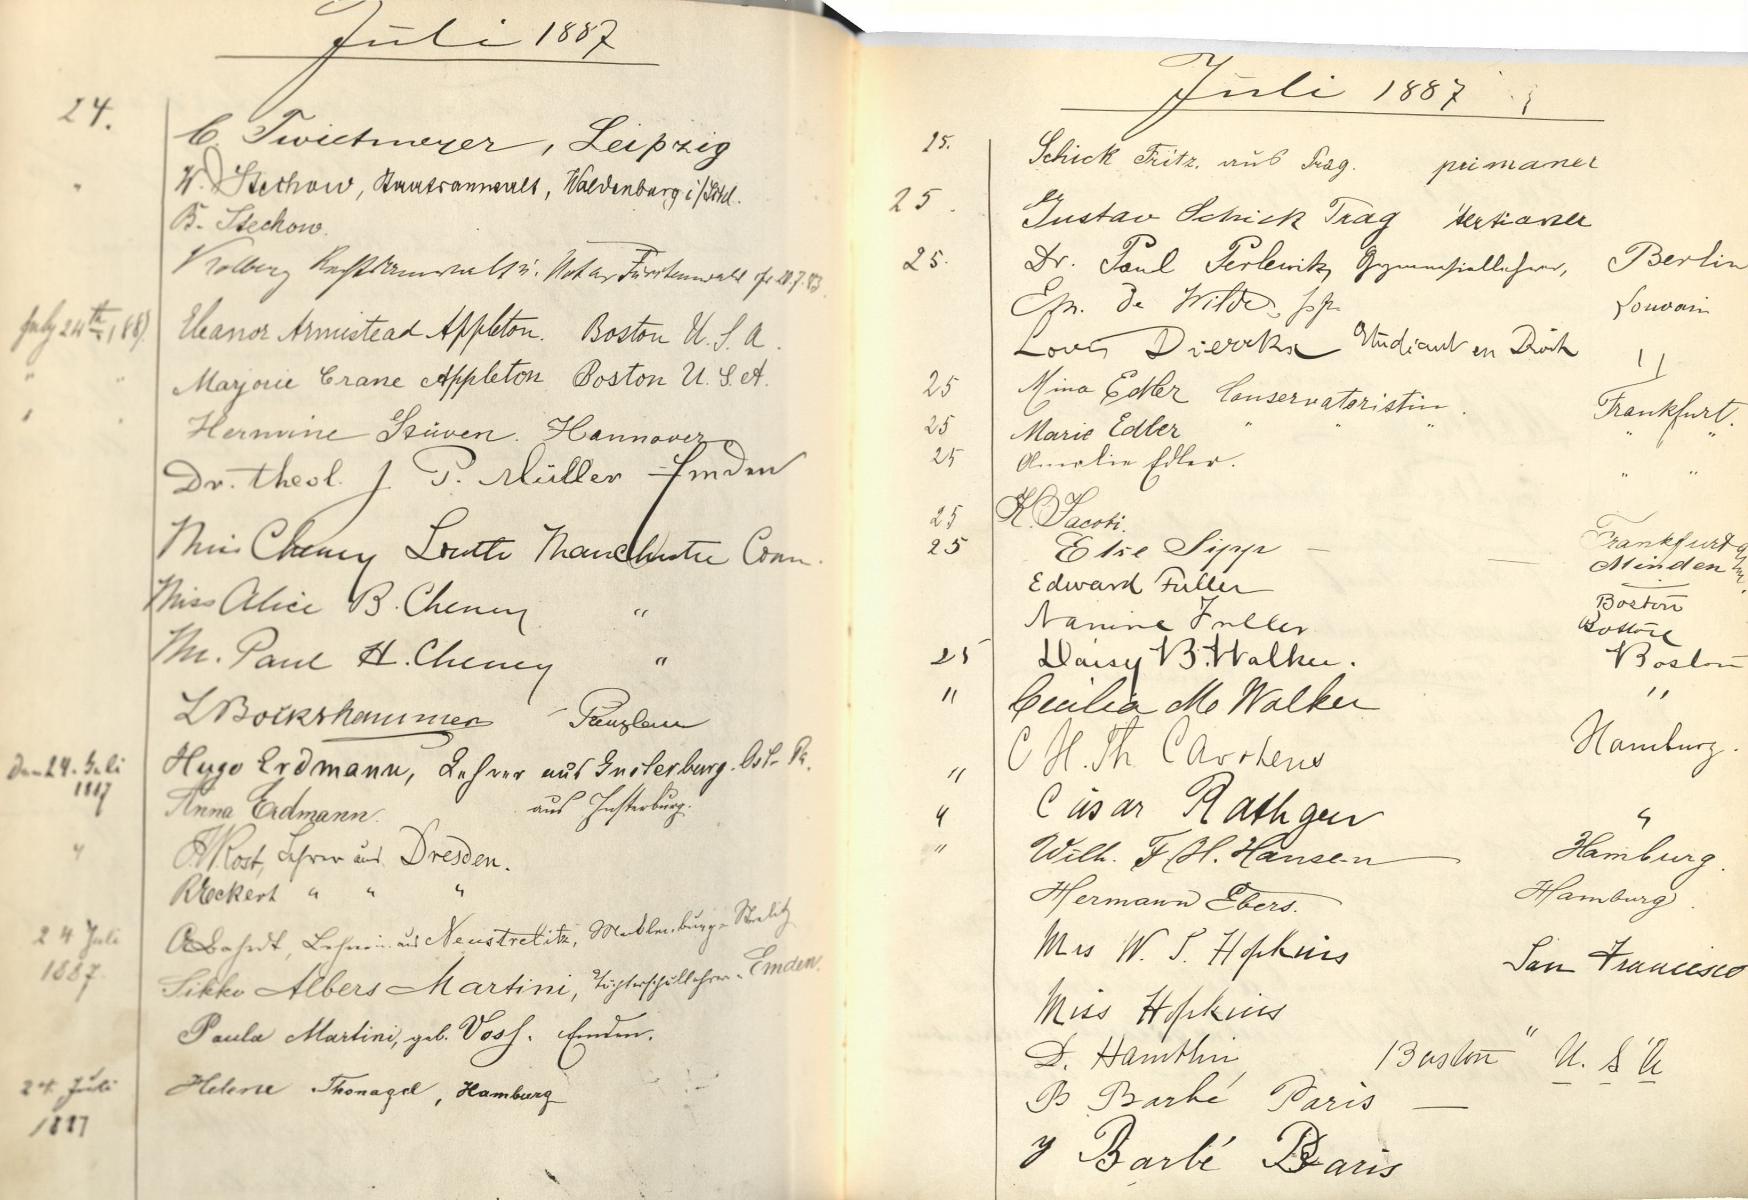 Juli 1887
24.
C. Twietmeyer, Leipzig
" W. Stechow, Staatsanwalt, Waldenburg i/Schl.
B. Stechow.
Kolberg Rechtsanwalt u. Notar Fürstenwalde
July 24th 1887 Eleanor Armistead Appleton. Boston U. S. A.
" " Marjorie Crane Appleton Boston U. S. A.
" " Hermine Stüven. Hannover
Dr. theol. J. P. Müller - Emden
Miss Cheney South Manchester Conn.
Miss Alice B. Cheney "
Mr. Paul H. Cheney "
L Bockshammer
Den 24. Juli 1887 Hugo Erdmann, Lehrer aus Insterburg. Ost-Pr.
Anna Erdmann. aus Insterburg.
" Kost, Lehrer aus Dresden.
R Eckert " " "
24 Juli 1887. Lehrerin aus Neustrelitz, Mecklenburg-Strelitz
Sikko Albers Martini, Töchterschullehrer. Emden.
Paula Martini, geb. Voss. Emden.
24. Juli 1887 Helene Thonagel, Hamburg
Juli 1887
25. Schick Fritz. aus Prag. primaner
25. Gustav Schick Prag tertianer
25. Dr. Paul Perlewitz, Gymnasiallehrer, Berlin
De Wilde Louvain
Louis Dierckx Etudiant en Droit "
25 Mina Edler Conservatoristin. Frankfurt.
25 Marie Edler " " " " "
25 Amalie Edler. " "
25 K. Jacobi. Frankfurt
25 Else Sipp — — Minden
Edward Fuller Boston
Nanine Fuller Boston
25 Daisy B. Walker. Boston
" Cecilia M. Walker "
" C. H. Th. Carstens Hamburg.
" Cäsar Rathgen "
" Wilh. F. H. Hansen Hamburg.
Hermann Ebers. Hamburg.
Mrs W. S. Hopkins San Francisco
Miss Hopkins "
D. Hamthin, Boston U. S. A
B Barbé Paris —
y Barbé Paris